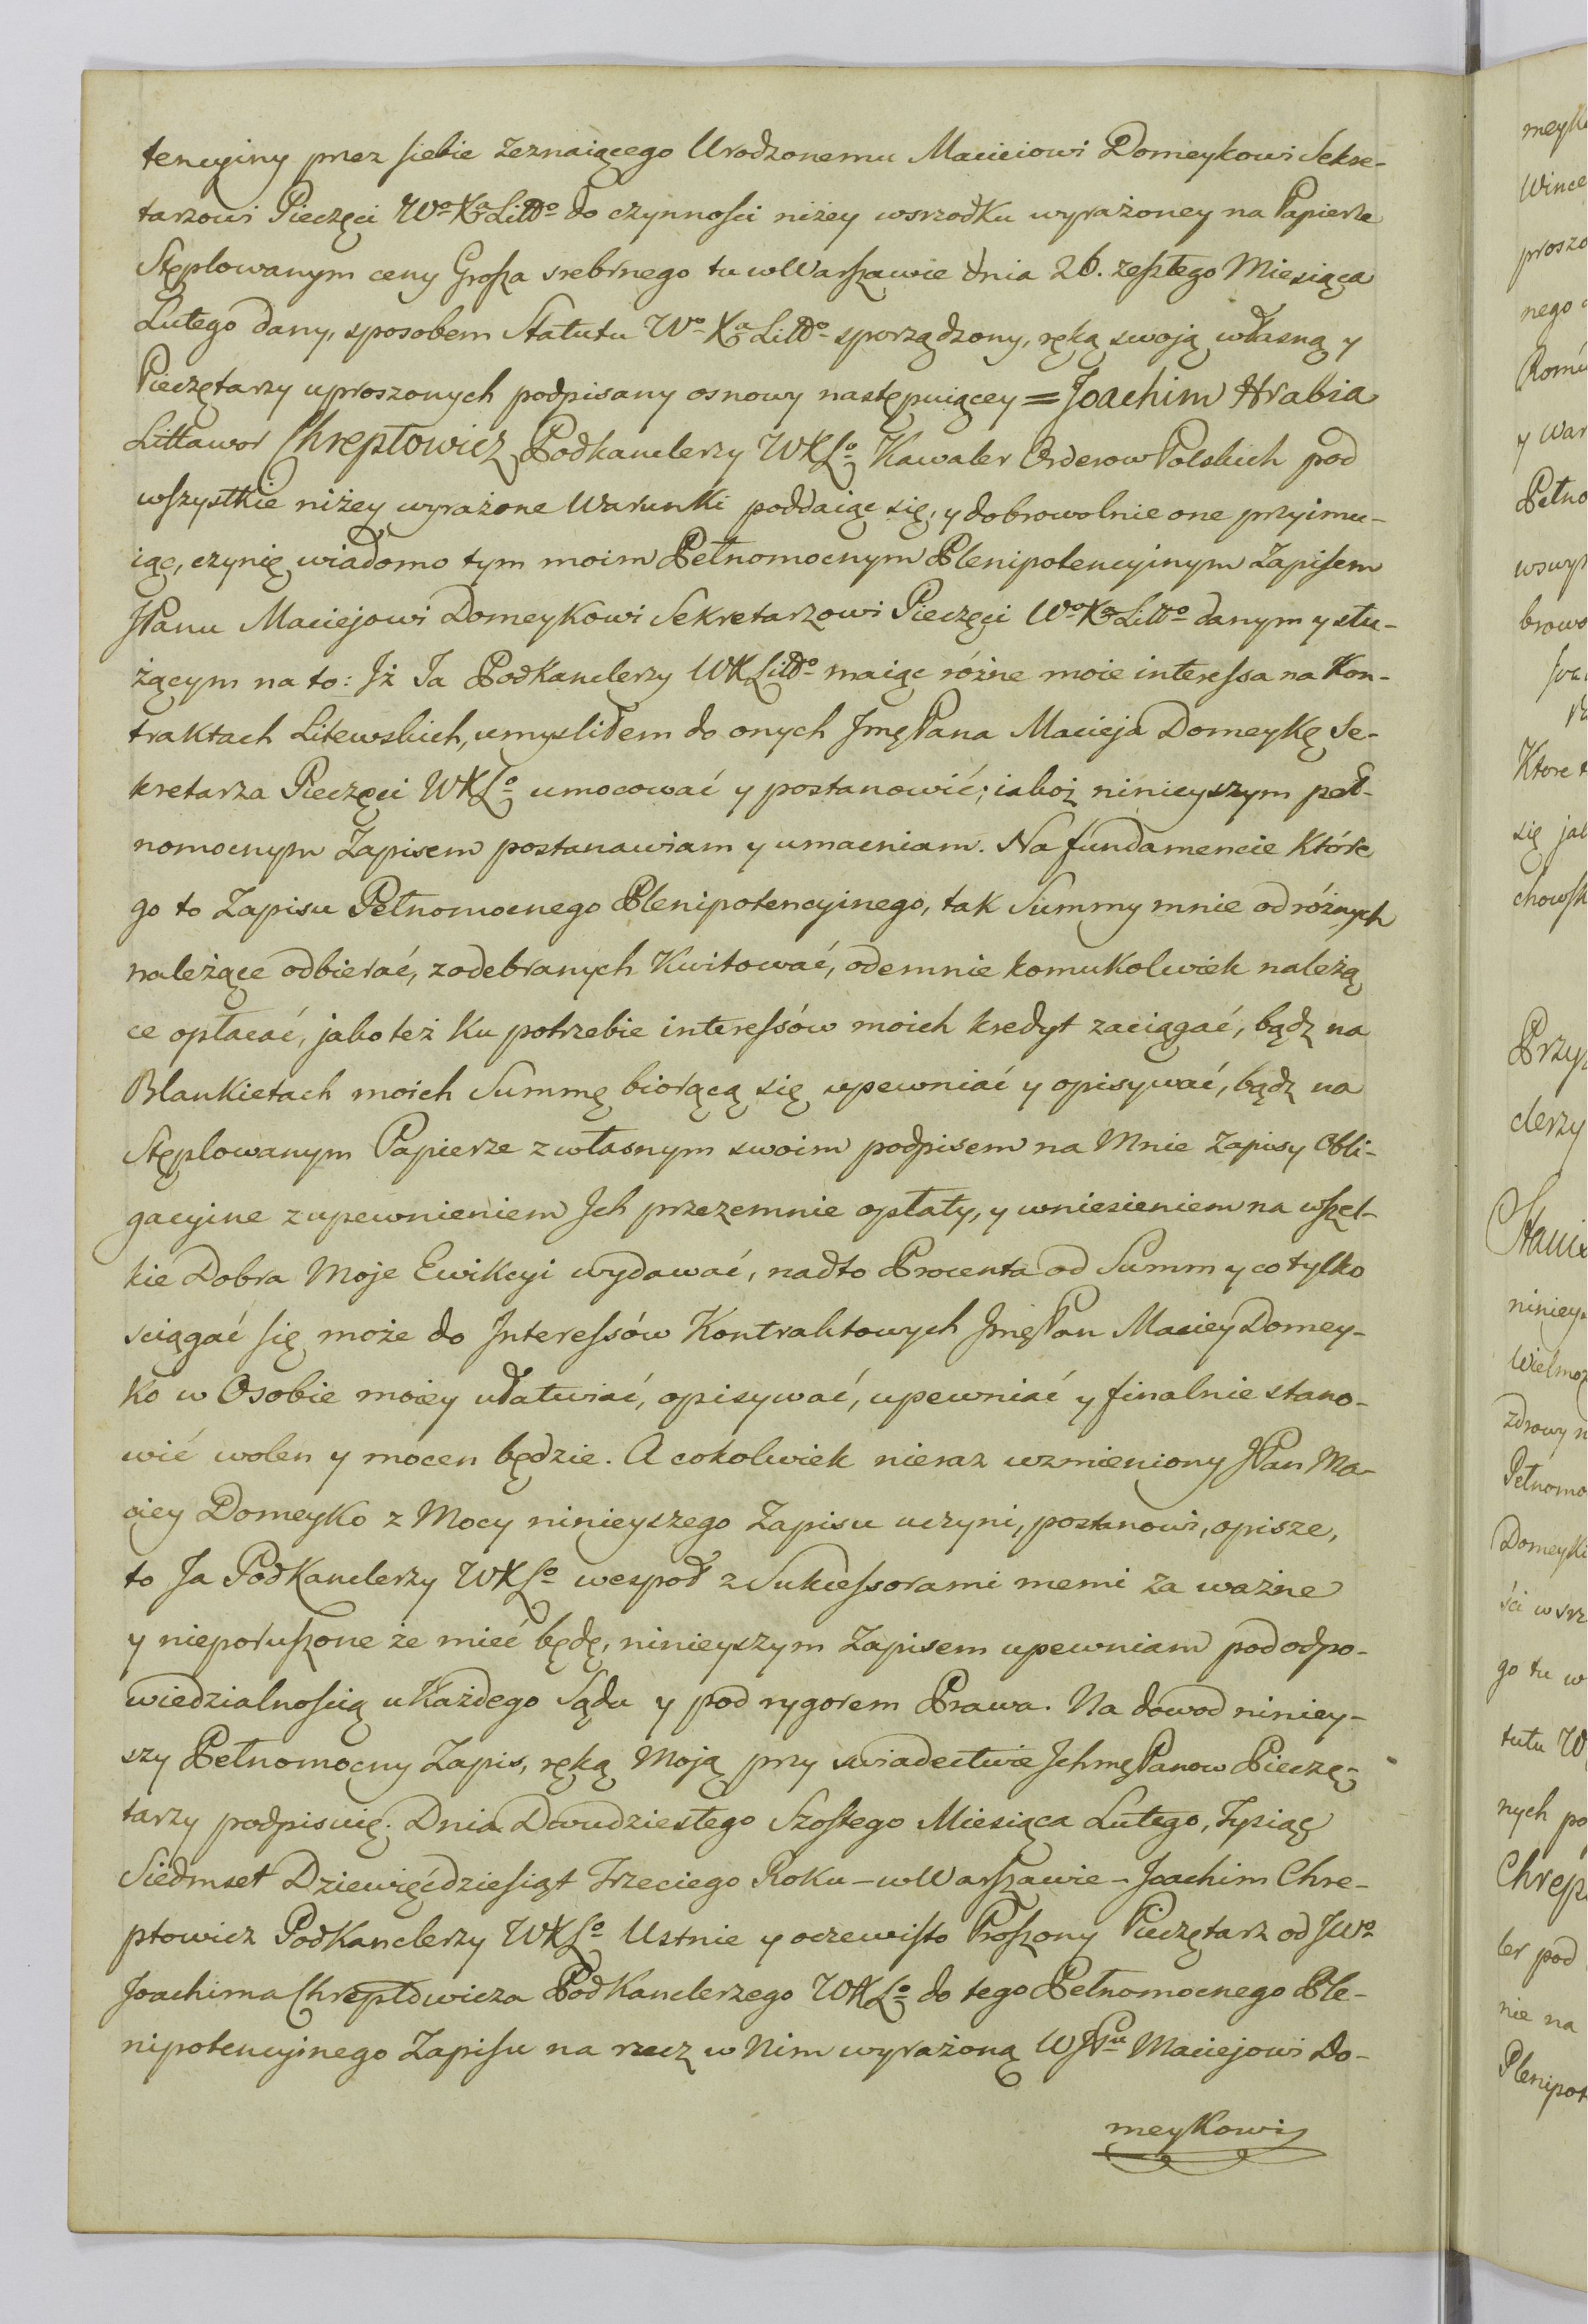 tencyiny przez siebie zeznaiącego Urodzonemu Maciciowi Domeykowi Sekre-
tarzowi Pieczęci Wo Xa Litto do czynności niżey wsrzodku wyrażoney na Papierze
Stęplowanym ceny Grosza srebrnego tu w Warszawie dnia 26. zeszłego Miesiąca
Lutego dany, sposobem Statutu Wo Xa Litto sporządzony, ręką swoią własną y
Pieczętarzy uproszonych podpisany osnowy następuiącey = Joachim Hrabia
Littawor Chreptowicz Podkanclerzy WXLo Kawaler Orderow Polskich pod
wszystkie niżey wyrażone Warunki poddaiąc się, y dobrowolnie one przyimu-
iąc, czynię wiadomo tym moim Pełnomocnym Plenipotencyinym Zapisem
JPanu Maciejowi Domeykowi Sekretarzowi Pieczęci Wo Xa Litto danym y słu-
żącym na to: Jż Ja Podkanclerzy WXLitto maiąc różne moie interessa na Kon-
traktach Litewskich, umysliłem do onych Jmę Pana Macieja Domeykę Se-
kretarza Pieczęci WXLo umocować y postanowić; iakoż ninieyszym peł-
nomocnym Zapisem postanawiam y umacniam. Na fundamencie które
go to Zapisu Pełnomocnego Plenipotencyinego, tak Summy mnie od różnych
należące odbierać, z odebranych Kwitować, odemnie komukolwiek należą
ce opłacać, jako też ku potrzebie interessów moich kredyt zaciągać, bądz na
Blankietach moich Summę biorącą się upewniać y opisywać, bądz na
Stęplowanym Papierze z własnym swoim podpisem na Mnie Zapisy Obli-
gacyine z upewnieniem Jch przezemnie opłaty, y wniesieniem na wszel-
kie Dobra Moje Ewikcyi wydawać, nadto Procenta od Summ y co tylko
sciągać się może do Interessów Kontraktowych Jmę Pan Maciey Domey-
ko w Osobie moiey ułatwiać, opisywać, upewniać y finalnie stano-
wić wolen y mocen będzie. A cokolwiek nieraz wzmieniony JPan Ma-
ciey Domeyko z Mocy ninieyszego Zapisu uczyni, postanowi, opisze,
to Ja Podkanclerzy WXLo wespoł z Sukcessorami memi za ważne
y nieporuszone że mieć będę, ninieyszym Zapisem upewniam pod odpo-
wiedzialnością u Każdego Sądu y pod rygorem Prawa. Na dowod niniey-
szy Pełnomocny Zapis, ręką Moją przy swiadectwie Jchmę Panow Pieczę-
tarzy podpisuię. Dnia Dwudziestego Szostego Miesiąca Lutego, Tysiąc
Siedmset Dziewięćdziesiąt Trzeciego Roku – w Warszawie – Joachim Chre-
ptowicz Podkanclerzy WXLo Ustnie y oczewisto Proszony Pieczętarz od JWo
Joachima Chreptowicza Podkanclerzego WXLo do tego Pełnomocnego Ple-
nipotencyinego Zapisu na rzecz w Nim wyrażoną WJPu Maciejowi Do-
meykowi